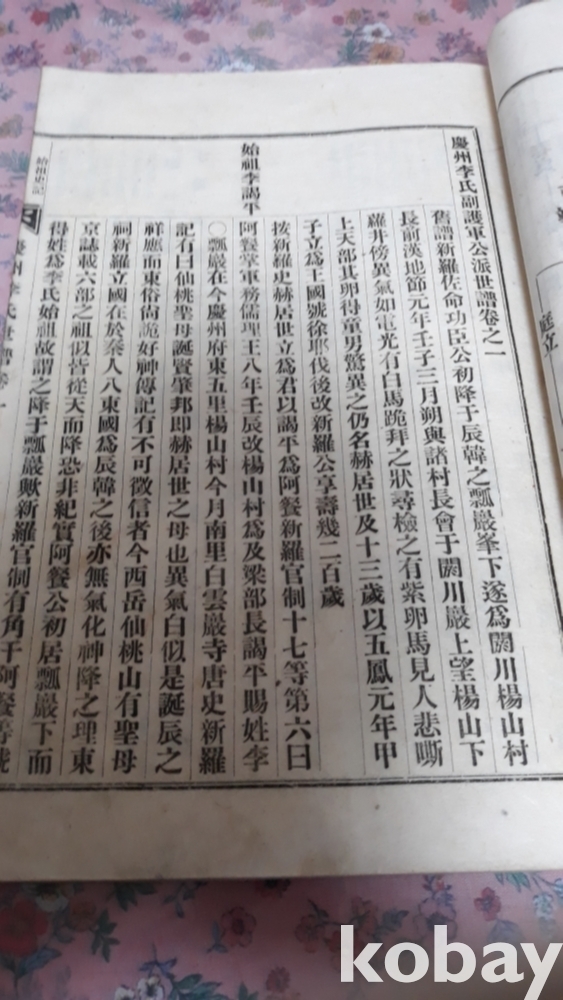 慶州李氏副護軍公派世譜卷之一
舊譜新羅佐命功臣公初降于辰韓之瓢巖峯下遂爲閼川楊山村
長前漢地節元年壬子三月朔與諸村長會于閼川巖上望楊山下
蘿井傍異氣如電光有白馬跪拜之狀尋檢之有紫卵馬見人悲嘶
上天部其卵得童男驚異之仍名赫居世及十三歲以五鳳元年甲
子立爲王國號徐耶伐後改新羅公享壽幾二百歲
始祖李謁平
按新羅史赫居世立爲君以謁平爲阿餐新羅官制十七等第六曰
阿餐掌軍務儒理王八年壬辰改楊山村爲及梁部長謁平賜姓李
○瓢巖在今慶州府東五里楊山村今月南里白雲巖寺唐史新羅
記有曰仙桃聖母誕賢肇邦即赫居世之母也異氣白似是誕辰之
祥應而東俗尙詭好神傳記有不可徵信者今西岳仙桃山有聖母
祠新羅立國在於秦人八東國爲辰韓之後亦無氣化神降之理東
京誌載六部之祖似皆從天而降恐非紀實阿餐公初居瓢巖下而
得姓爲李氏始祖故謂之降于瓢巖歟新羅官制有角干阿餐等號
始祖史記
慶州李氏世譜卷一
庭立
kobay